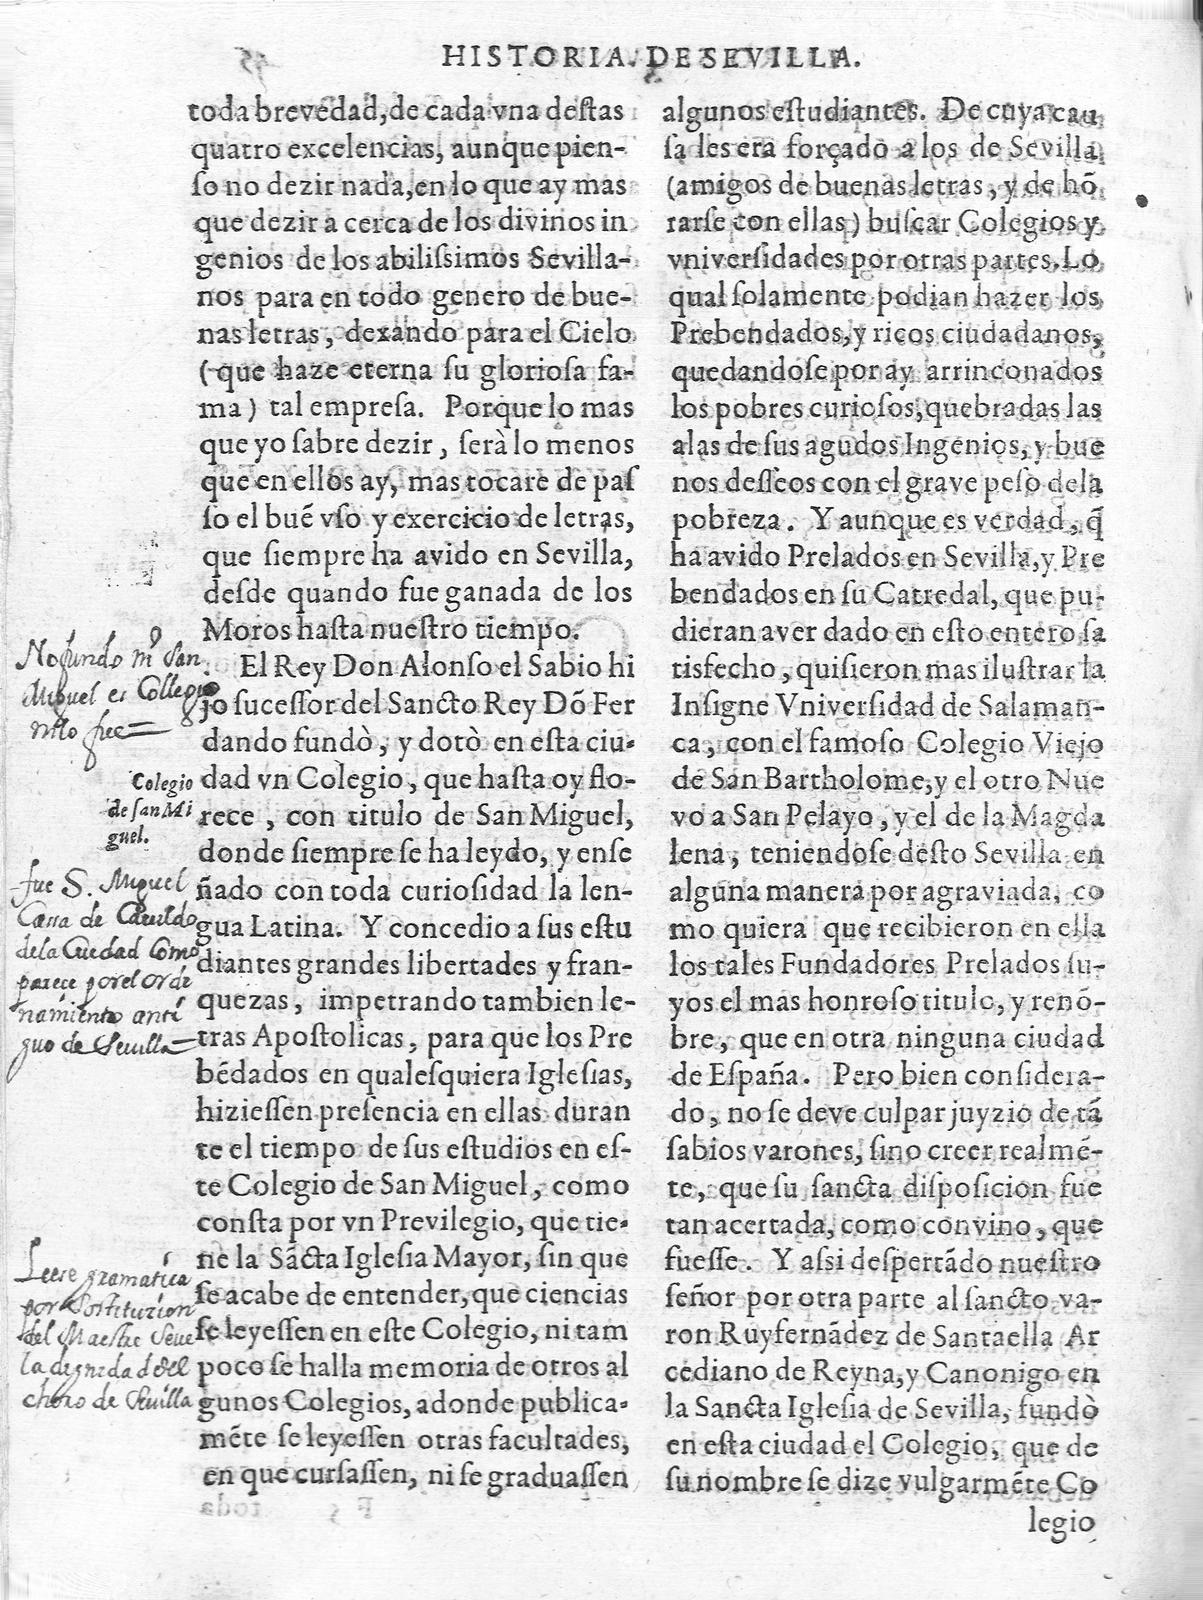 HISTORIA. DE SEVILLA.
toda brevedad, de cada vna deſtas
quatro excelencias, aunque pien-
ſo no dezir nada, en lo que ay mas
que dezir a cerca de los divinos in
genios de los abiliſsimos Sevilla-
nos para en todo genero de bue-
nas letras, dexando para el Cielo
(que haze eterna ſu glorioſa fa-
ma) tal empreſa. Porque lo mas
que yo ſabre dezir, ſerà lo menos
que en ellos ay, mas tocare de paſ
ſo el buẽ vſo y exercicio de letras,
que ſiempre ha avido en Sevilla,
deſde quando fue ganada de los
Moros haſta nueſtro tiempo.
El Rey Don Alonſo el Sabio hi
jo ſuceſſor del Sancto Rey Dõ Fer
dando fundò, y dotò en eſta ciu-
dad vn Colegio, que haſta oy flo-
rece, con titulo de San Miguel,
donde ſiempre ſe ha leydo, y enſe
ñado con toda curioſidad la len-
gua Latina. Y concedio a ſus eſtu
diantes grandes libertades y fran-
quezas, impetrando tambien le-
tras Apoſtolicas, para que los Pre
bẽdados en qualeſquiera Igleſias,
hizieſſen preſencia en ellas duran
te el tiempo de ſus eſtudios en eſ-
te Colegio de San Miguel, como
conſta por vn Previlegio, que tie-
ne la Sãcta Igleſia Mayor, ſin que
ſe acabe de entender, que ciencias
ſe leyeſſen en eſte Colegio, ni tam
poco ſe halla memoria de otros al
gunos Colegios, adonde publica-
mẽte ſe leyeſſen otras facultades,
en que curſaſſen, ni ſe graduaſſen
No fundo San
Miguel es Collegio
Colegio
de ſan Mi
guel.
fue S. Miguel
Casa de Cauildo
de la Ciudad como
parece por el orde
namiento anti
guo de Seuilla
Leese gramatica
por Sostituzion
del Maestre
la dignidad del
choro de Seuilla
algunos eſtudiantes. De cuya cau
ſa les era forçado a los de Sevilla,
(amigos de buenas letras, y de hõ
rarſe con ellas) buſcar Colegios y
vniverſidades por otras partes. Lo
qual ſolamente podian hazer los
Prebendados, y ricos ciudadanos,
quedandoſe por ay arrinconados
los pobres curioſos, quebradas las
alas de ſus agudos Ingenios, y bue
nos deſſeos con el grave peſo dela
pobreza. Y aunque es verdad, q̃
ha avido Prelados en Sevilla, y Pre
bendados en ſu Catredal, que pu-
dieran aver dado en eſto entero ſa
tisfecho, quiſieron mas iluſtrar la
Inſigne Vniverſidad de Salaman-
ca, con el famoſo Colegio Viejo
de San Bartholome, y el otro Nue
vo a San Pelayo, y el de la Magda
lena, teniendoſe deſto Sevilla en
alguna manera por agraviada, co
mo quiera que recibieron en ella
los tales Fundadores Prelados ſu-
yos el mas honroſo titulo, y renõ-
bre, que en otra ninguna ciudad
de Eſpaña. Pero bien conſidera-
do, no ſe deve culpar juyzio de tã
ſabios varones, ſino creer realmẽ-
te, que ſu ſancta diſpoſicion fue
tan acertada, como convino, que
fueſſe. Y aſsi deſpertãdo nueſtro
ſeñor por otra parte al ſancto va-
ron Ruyfernãdez de Santaella Ar
cediano de Reyna, y Canonigo en
la Sancta Igleſia de Sevilla, fundò
en eſta ciudad el Colegio, que de
ſu nombre ſe dize vulgarmẽte Co
legio